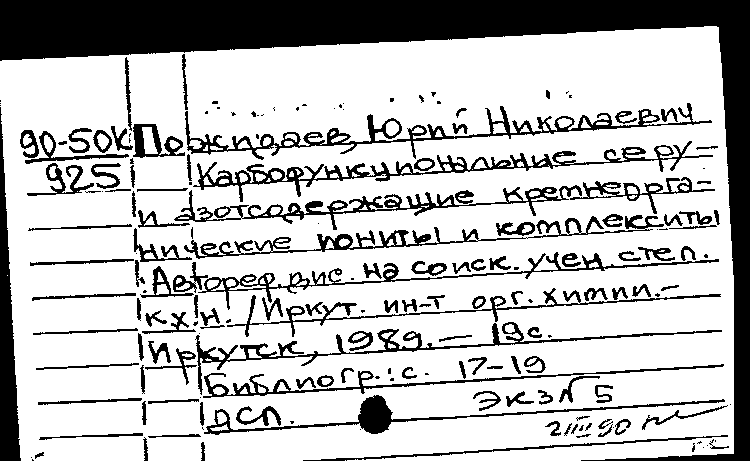 90-50К Пожидаев, Юрий Николаевич
925 Карбофункциональные серу-
и азотсодержащие кремнеорга-
нические иониты и комплекситы
: Автореф. дис. на соиск. учен. степ.
к.х.н. / Иркут. ин-т орг. химии.-
Иркутск, 1989. — 19с.
Библиогр.: с. 17-19
ДСП. Экз № 5
2 III 90